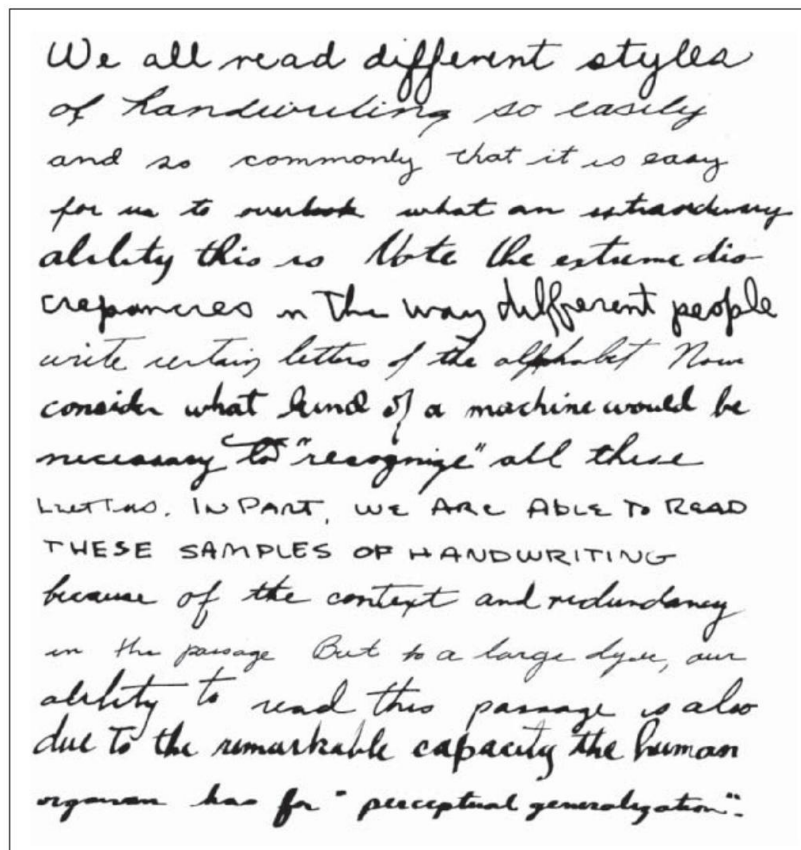 We all read different styles
of handwriting so easily
and so commonly that it is easy
for us to overlook what an extraordinary
ability this is Note the extreme dis-
crepancies in the way different people
write certain letters of the alphabet Now
consider what kind of a machine would be
necessary to "recognize" all these
letters. IN PART, WE ARE ABLE TO READ
THESE SAMPLES OF HANDWRITING
because of the context and redundancy
in the passage But to a large degree, our
ability to read this passage is also
due to the remarkable capacity the human
organism has for "perceptual generalization".